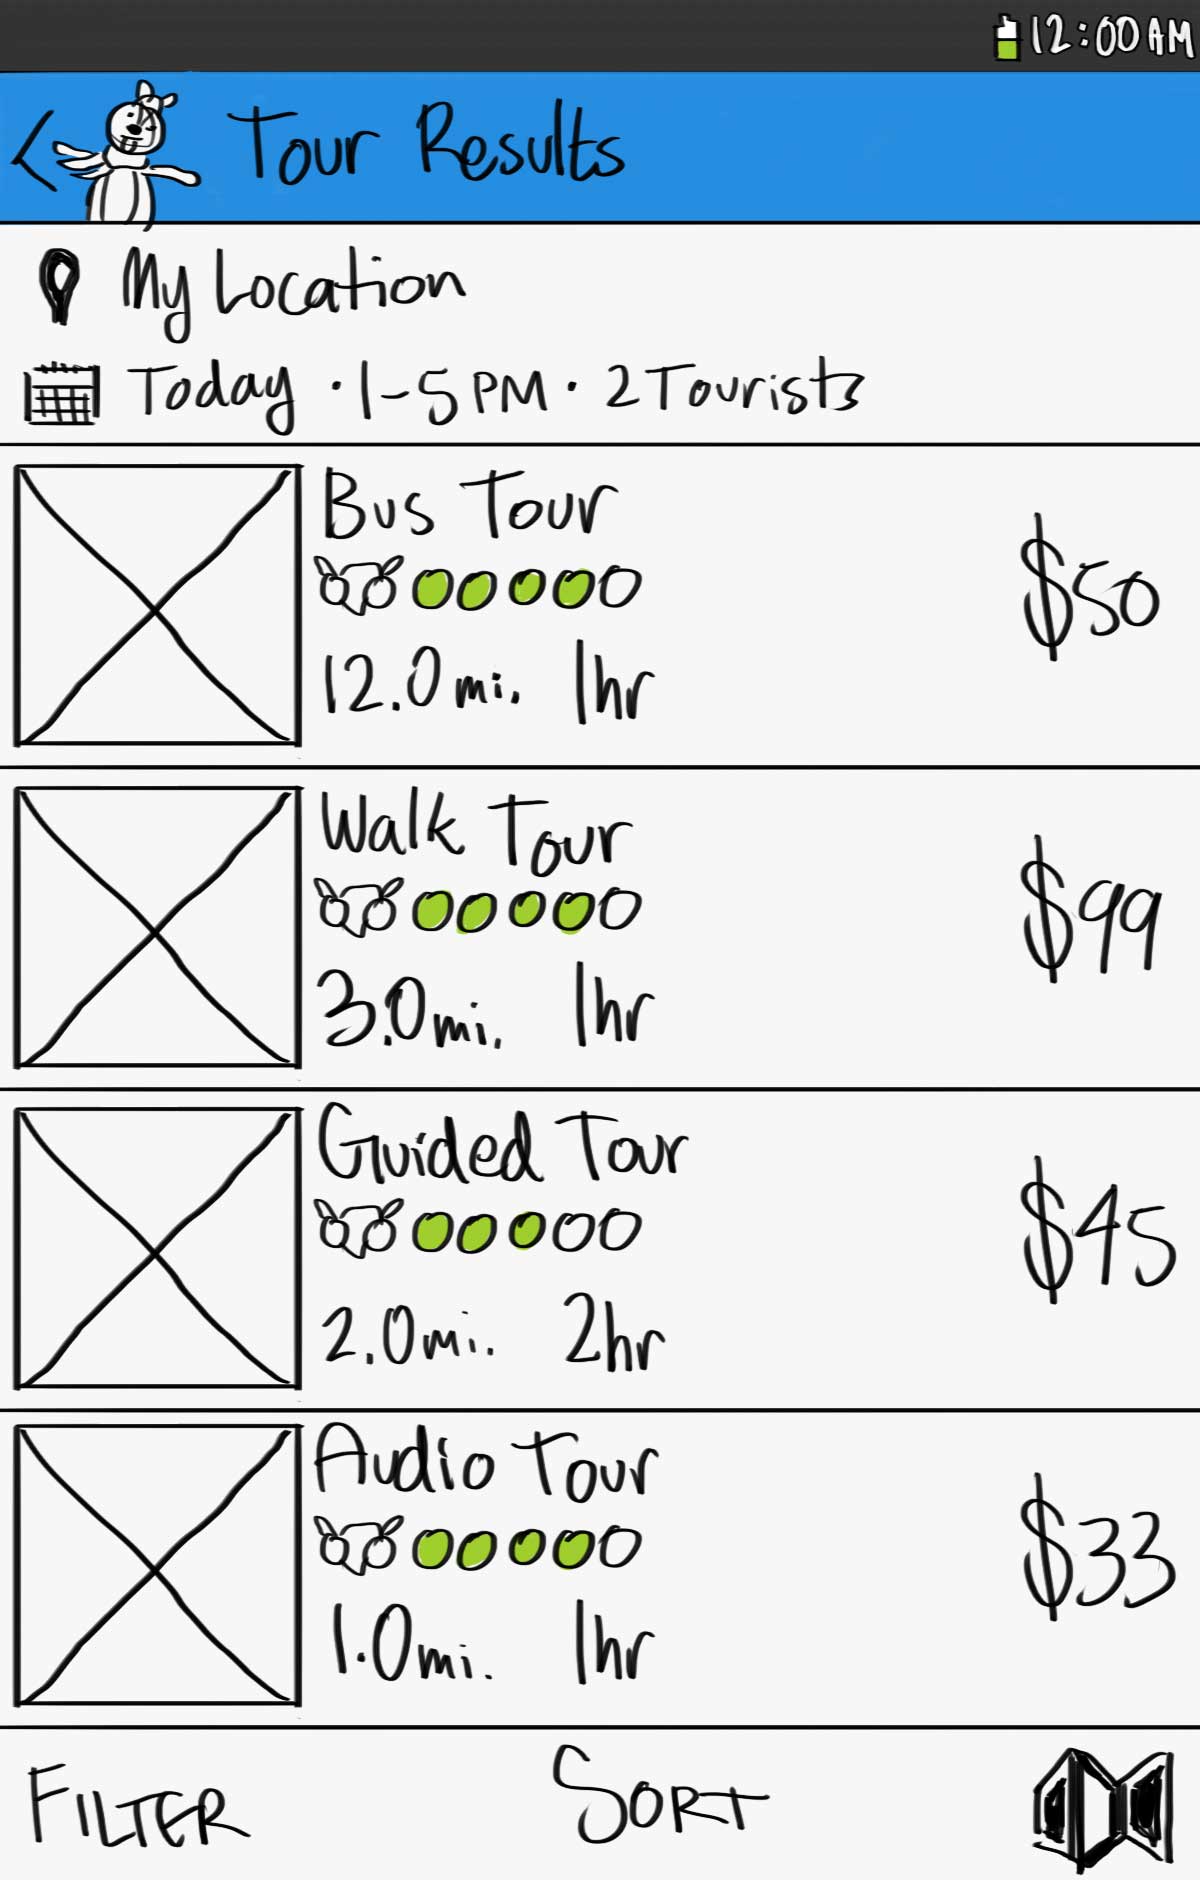 12:00 AM
< Tour Results
My Location
Today · 1-5 PM · 2 Tourists
Bus Tour
$50
12.0 mi. 1hr
Walk Tour
$99
3.0 mi. 1hr
Guided Tour
$45
2.0 mi. 2hr
Audio Tour
$33
1.0 mi. 1hr
FILTER SORT